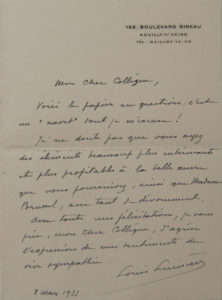 156, BOULEVARD BINEAU
NEUILLY S/ SEINE
TÉL. MAILLOT 14-53
Mon cher Collègue,
Voici le papier en question ; c'est
un "navet" dont je m'excuse !
Je ne doute pas que vous ayez
des éléments beaucoup plus intéressants
et plus profitables à la belle œuvre
que vous poursuivez, ainsi que Madame
avec tant de dévouement.
Avec toutes mes félicitations, je vous
prie, mon cher Collègue, d'agréer
l'expression de mes sentiments de
vive sympathie.
Louis
2 mars 1923